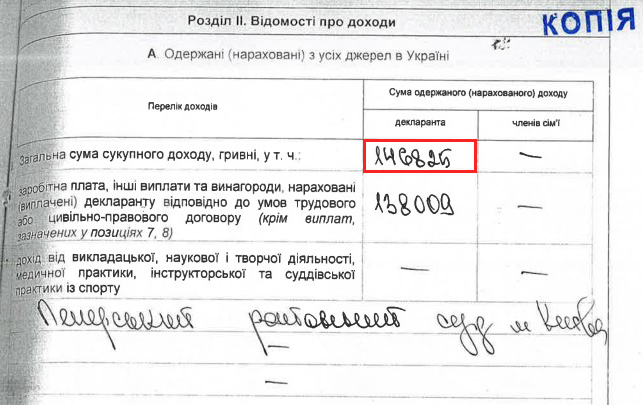 Розділ II. Відомості про доходи
КОПІЯ
А. Одержані (нараховані) з усіх джерел в Україні
Перелік доходів
Сума одержаного (нарахованого) доходу
декларанта
членів сім'ї
Загальна сума сукупного доходу, гривні, у т. ч.:
146825
—
заробітна плата, інші виплати та винагороди, нараховані
(виплачені) декларанту відповідно до умов трудового
або цивільно-правового договору (крім виплат,
зазначених у позиціях 7, 8)
138009
—
дохід від викладацької, наукової і творчої діяльності,
медичної практики, інструкторської та суддівської
практики із спорту
—
—
Печерський районний суд м Києва
—
—